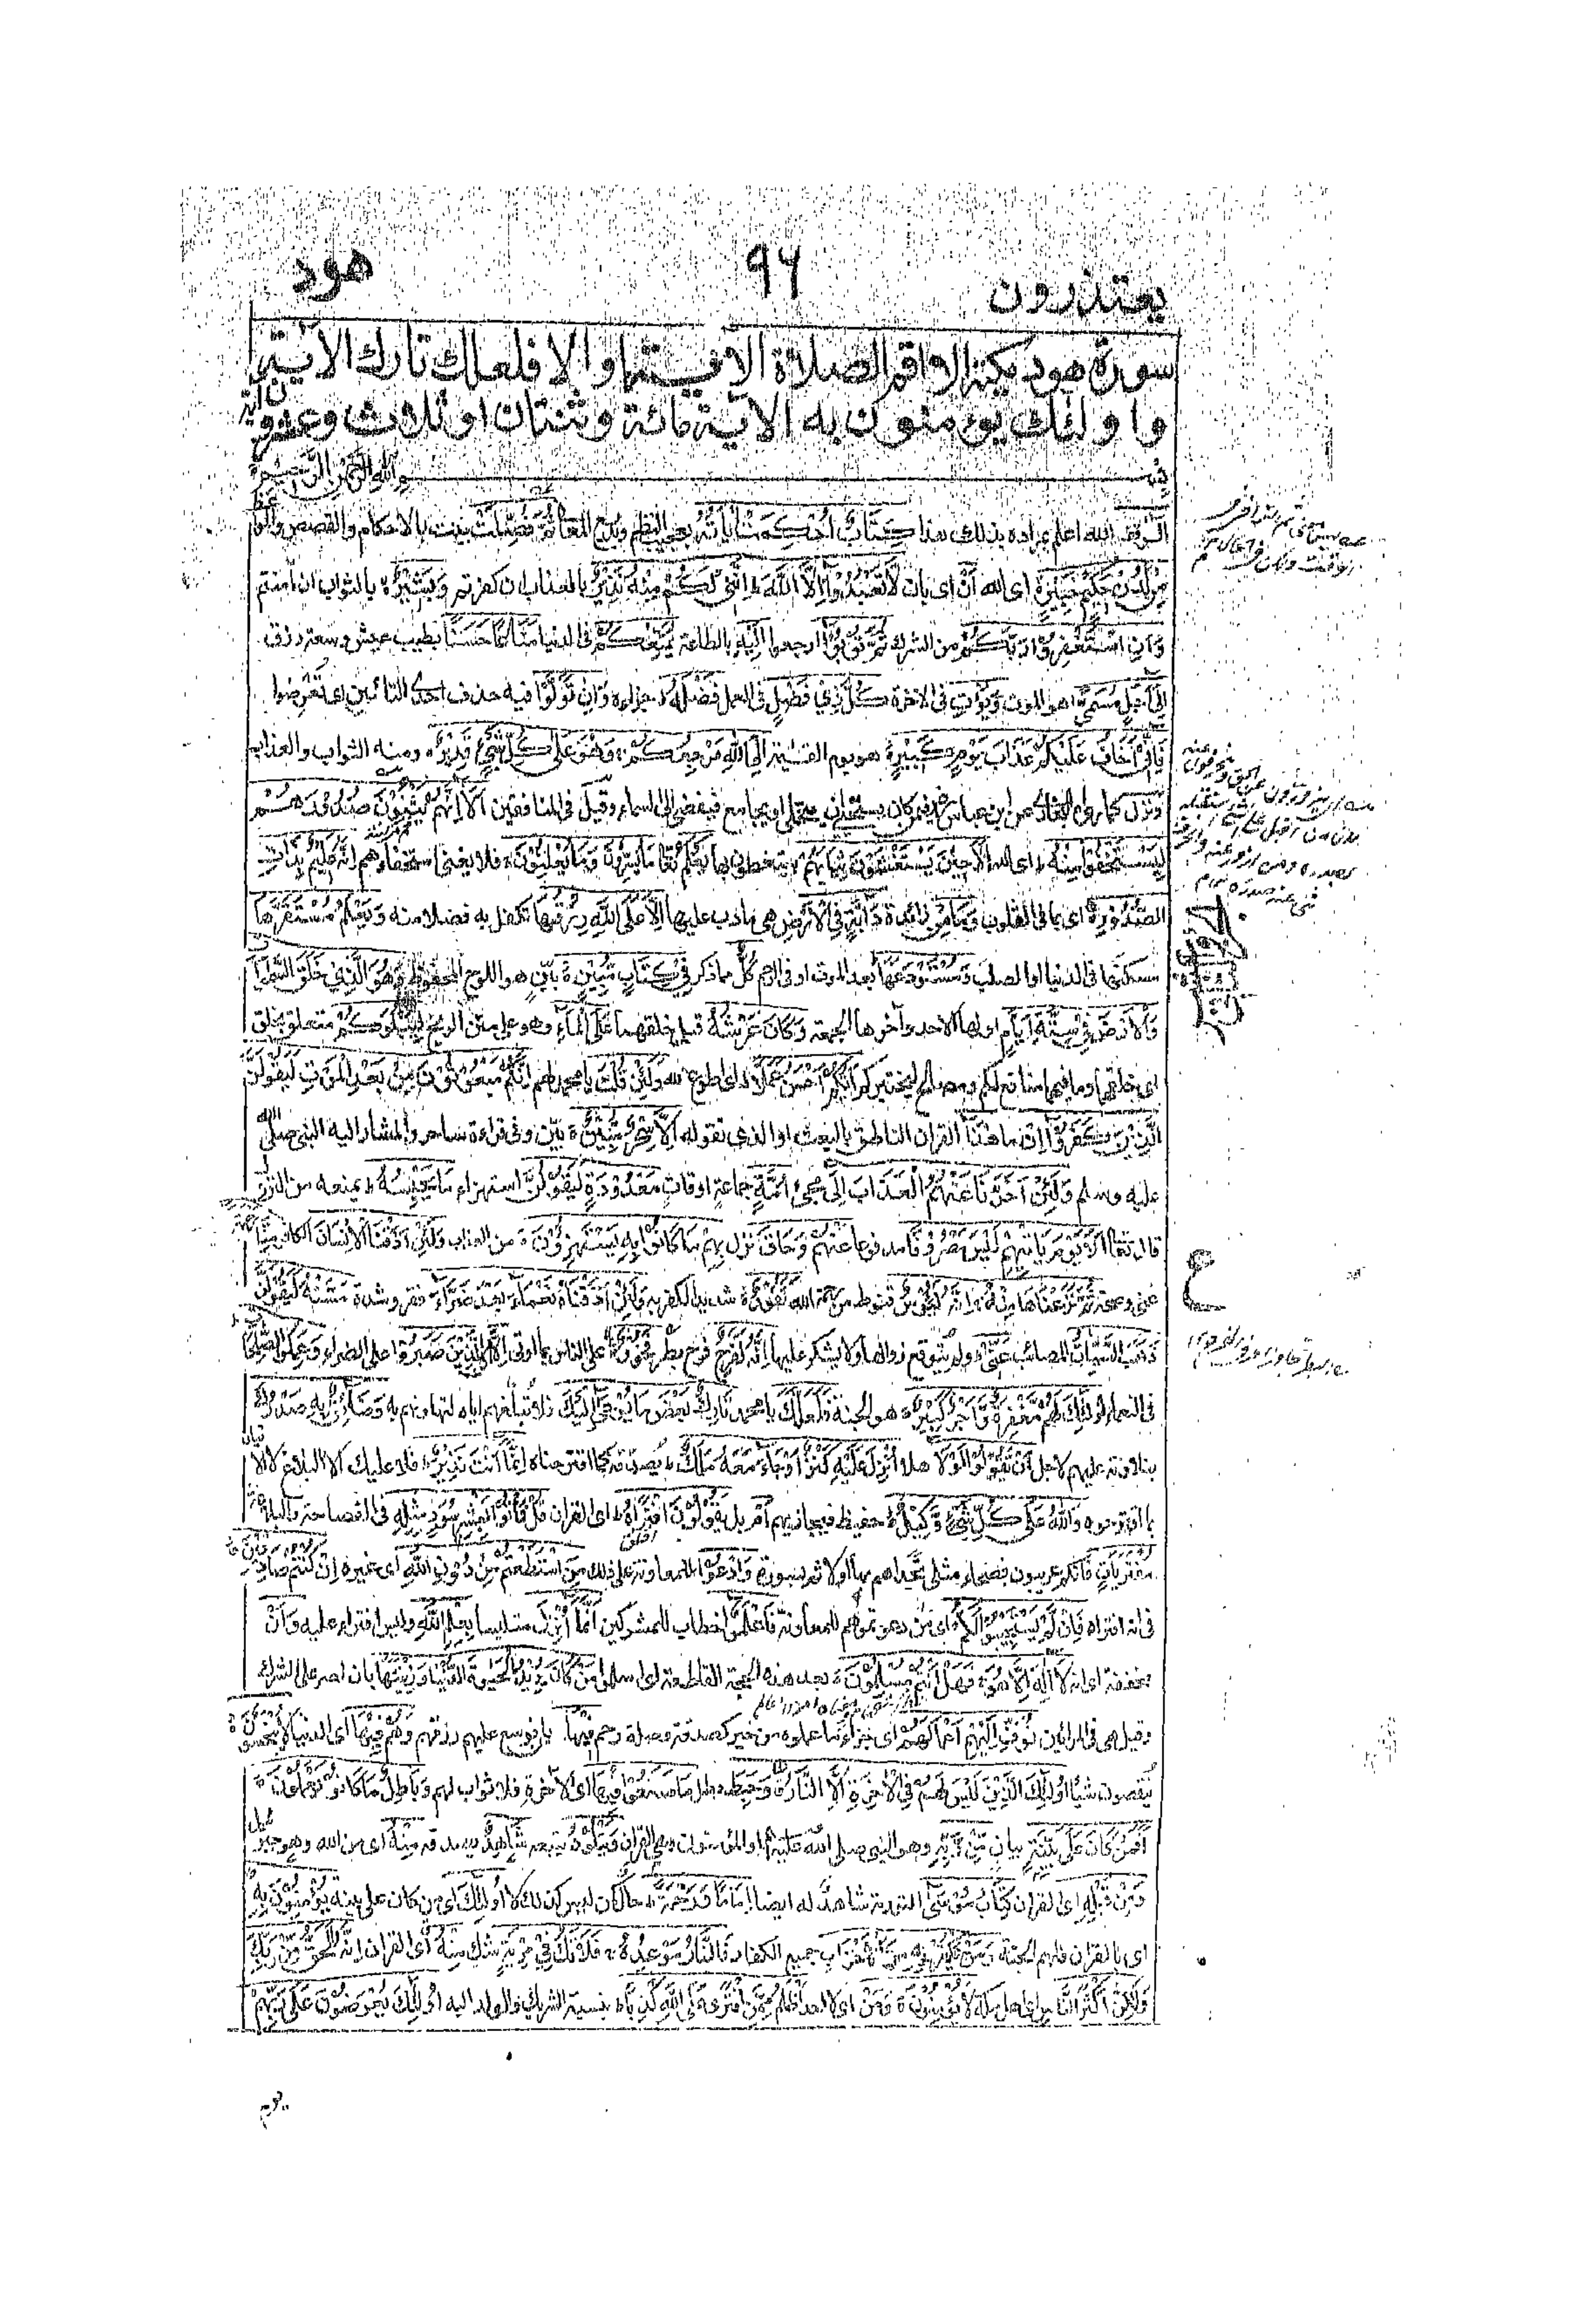 يعتذرون
٩٦
هود
سورة هود مكية الا واقم الصلاة الآية او الا فلعلك تارك الآية
واولئك يؤمنون به الآية مائة وثنتان او ثلاث وعشرون اية
بسم الله الرحمن الرحيم
الٓرٰ الله اعلم بمراده بذلك هذا كِتَابٌ اُحْكِمَتْ اٰيَاتُهُ بعجيب النظم وبديع المعانى ثُمَّ فُصِّلَتْ بينت بالاحكام والقصص والمواعظ
مِنْ لَّدُنْ حَكِيْمٍ خَبِيْرٍ اى الله اَنْ اى بان لَّا تَعْبُدُوْا اِلَّا اللّٰهَ اِنَّنِىْ لَكُمْ مِنْهُ نَذِيْرٌ بالعذاب ان كفرتم وَبَشِيْرٌ بالثواب ان اٰمنتم
وَاَنِ اسْتَغْفِرُوْا رَبَّكُمْ من الشرك ثُمَّ تُوْبُوْا ارجعوا اِلَيْهِ بالطاعة يُمَتِّعْكُمْ فى الدنيا مَتَاعًا حَسَنًا بطيب عيش وسعة رزق
اِلٰى اَجَلٍ مُسَمًّى هو الموت وَيُؤْتِ فى الاخرة كُلَّ ذِىْ فَضْلٍ فى العمل فَضْلَهُ جزاءه وَاِنْ تَوَلَّوْا فيه حذف احدى التائين اى تُعْرِضوا
فَاِنِّىْ اَخَافُ عَلَيْكُمْ عَذَابَ يَوْمٍ كَبِيْرٍ هو يوم القيمة اِلَى اللّٰهِ مَرْجِعُكُمْ وَهُوَ عَلٰى كُلِّ شَىْءٍ قَدِيْرٌ ومنه الثواب والعذاب
ونزل كما رواه البخارى عن ابن عباس فيمن كان يستحيى ان يتخلى او يجامع فيفضى الى السماء وقيل فى المنافقين اَلَا اِنَّهُمْ يَثْنُوْنَ صُدُوْرَهُمْ
لِيَسْتَخْفُوْا مِنْهُ اى الله اَلَا حِيْنَ يَسْتَغْشُوْنَ ثِيَابَهُمْ يتغطون بها يَعْلَمُ تعالى مَا يُسِرُّوْنَ وَمَا يُعْلِنُوْنَ فلا يغنى استخفاؤهم اِنَّهُ عَلِيْمٌ بِذَاتِ
الصُّدُوْرِ اى بما فى القلوب وَمَا مِنْ زائدة دَابَّةٍ فِى الْاَرْضِ هى ما دب عليها اِلَّا عَلَى اللّٰهِ رِزْقُهَا تكفل به فضلا منه وَيَعْلَمُ مُسْتَقَرَّهَا
مسكنها فى الدنيا او الصلب وَمُسْتَوْدَعَهَا بعد الموت او فى الرحم كُلٌّ مما ذكر فِىْ كِتَابٍ مُّبِيْنٍ بيّن هو اللوح المحفوظ وَهُوَ الَّذِىْ خَلَقَ السَّمٰوٰتِ
وَالْاَرْضَ فِىْ سِتَّةِ اَيَّامٍ اولها الاحد واٰخرها الجمعة وَكَانَ عَرْشُهُ قبل خلقهما عَلَى الْمَاءِ وهو على متن الريح لِيَبْلُوَكُمْ متعلق بخلق
اى خلقهما وما فيهما منافع لكم ومصالح ليختبركم اَيُّكُمْ اَحْسَنُ عَمَلًا اى اطوع لله وَلَئِنْ قُلْتَ يا محمد لهم اِنَّكُمْ مَّبْعُوْثُوْنَ مِنْ بَعْدِ الْمَوْتِ لَيَقُوْلَنَّ
الَّذِيْنَ كَفَرُوْا اِنْ ما هٰذَا القران الناطق بالبعث او الذى تقوله اِلَّا سِحْرٌ مُّبِيْنٌ بيّن وفى قراءة ساحر والمشار اليه النبى صلى الله
عليه وسلم وَلَئِنْ اَخَّرْنَا عَنْهُمُ الْعَذَابَ اِلٰى مجىء اُمَّةٍ جماعة اوقات مَعْدُوْدَةٍ لَيَقُوْلُنَّ استهزاء مَا يَحْبِسُهُ يمنعه من النزول
قال تعالى اَلَا يَوْمَ يَاْتِيْهِمْ لَيْسَ مَصْرُوْفًا مدفوعا عَنْهُمْ وَحَاقَ نزل بِهِمْ مَا كَانُوْا بِهِ يَسْتَهْزِءُوْنَ من العذاب وَلَئِنْ اَذَقْنَا الْاِنْسَانَ الكافر مِنَّا رَحْمَةً
غنى وصحة ثُمَّ نَزَعْنَاهَا مِنْهُ اِنَّهُ لَيَئُوْسٌ قنوط من رحمة الله كَفُوْرٌ شديد الكفر به وَلَئِنْ اَذَقْنَاهُ نَعْمَاءَ بَعْدَ ضَرَّاءَ فقر وشدة مَسَّتْهُ لَيَقُوْلَنَّ
ذَهَبَ السَّيِّاٰتُ المصائب عَنِّىْ ولم يتوقع زوالها ولا يشكر عليها اِنَّهُ لَفَرِحٌ فرح بطر فَخُوْرٌ على الناس بما اوتى اِلَّا الَّذِيْنَ صَبَرُوْا على الضراء وَعَمِلُوا الصّٰلِحٰتِ
فى النعماء اُولٰئِكَ لَهُمْ مَّغْفِرَةٌ وَّاَجْرٌ كَبِيْرٌ هو الجنة فَلَعَلَّكَ يا محمد تَارِكٌ بَعْضَ مَا يُوْحٰى اِلَيْكَ فلا تبلغهم اياه لتهاونهم به وَضَائِقٌ بِهِ صَدْرُكَ
بتلاوته عليهم لاجل اَنْ يَّقُوْلُوْا لَوْلَا هلا اُنْزِلَ عَلَيْهِ كَنْزٌ اَوْ جَاءَ مَعَهُ مَلَكٌ يصدقه كما اقترحناه اِنَّمَا اَنْتَ نَذِيْرٌ فلا عليك الا البلاغ لا الاتيان
بما اقترحوه وَاللّٰهُ عَلٰى كُلِّ شَىْءٍ وَّكِيْلٌ حفيظ فيجازيهم اَمْ بل يَقُوْلُوْنَ افْتَرَاهُ اى القران قُلْ فَاْتُوْا بِعَشْرِ سُوَرٍ مِّثْلِهِ فى الفصاحة والبلاغة
مُفْتَرَيَاتٍ فانكم عربيون فصحاء مثلى تحداهم بها اولا ثم بسورة وَادْعُوْا للمعاونة على ذلك مَنِ اسْتَطَعْتُمْ مِّنْ دُوْنِ اللّٰهِ اى غيره اِنْ كُنْتُمْ صَادِقِيْنَ
فى انه افتراه فَاِنْ لَّمْ يَسْتَجِيْبُوْا لَكُمْ اى من دعوتموهم للمعاونة فَاعْلَمُوْا خطاب للمشركين اَنَّمَا اُنْزِلَ متلبسا بِعِلْمِ اللّٰهِ وليس افتراء عليه وَاَنْ
مخففة اى انه لَا اِلٰهَ اِلَّا هُوَ فَهَلْ اَنْتُمْ مُّسْلِمُوْنَ بعد هذه الحجة القاطعة اى اسلموا مَنْ كَانَ يُرِيْدُ الْحَيٰوةَ الدُّنْيَا وَزِيْنَتَهَا بان اصر على الشرك
وقيل هى فى المرائين نُوَفِّ اِلَيْهِمْ اَعْمَالَهُمْ اى جزاء ما عملوه من خير كصدقة وصلة رحم فِيْهَا بان نوسع عليهم رزقهم وَهُمْ فِيْهَا اى الدنيا لَا يُبْخَسُوْنَ
ينقصون شيئا اُولٰئِكَ الَّذِيْنَ لَيْسَ لَهُمْ فِى الْاٰخِرَةِ اِلَّا النَّارُ وَحَبِطَ بطل مَا صَنَعُوْا فِيْهَا اى الاٰخرة فلا ثواب لهم وَبَاطِلٌ مَّا كَانُوْا يَعْمَلُوْنَ
اَفَمَنْ كَانَ عَلٰى بَيِّنَةٍ بيان مِّنْ رَّبِّهِ وهو النبى صلى الله عليه او المؤمنون وهى القران وَيَتْلُوْهُ يتبعه شَاهِدٌ يصدقه مِّنْهُ اى من الله وهو جبرئيل
وَمِنْ قَبْلِهِ اى القران كِتَابُ مُوْسٰى التورية شاهد له ايضا اِمَامًا وَّرَحْمَةً حال كمن ليس كذلك لا اُولٰئِكَ اى من كان على بينة يُؤْمِنُوْنَ بِهِ
اى بالقران فلهم الجنة وَمَنْ يَّكْفُرْ بِهِ مِنَ الْاَحْزَابِ جميع الكفار فَالنَّارُ مَوْعِدُهُ فَلَا تَكُ فِىْ مِرْيَةٍ شك مِّنْهُ اى القران اِنَّهُ الْحَقُّ مِنْ رَّبِّكَ
وَلٰكِنَّ اَكْثَرَ النَّاسِ اى اهل مكة لَا يُؤْمِنُوْنَ وَمَنْ اى لا احد اَظْلَمُ مِمَّنِ افْتَرٰى عَلَى اللّٰهِ كَذِبًا بنسبة الشريك والولد اليه اُولٰئِكَ يُعْرَضُوْنَ عَلٰى رَبِّهِمْ
يوم